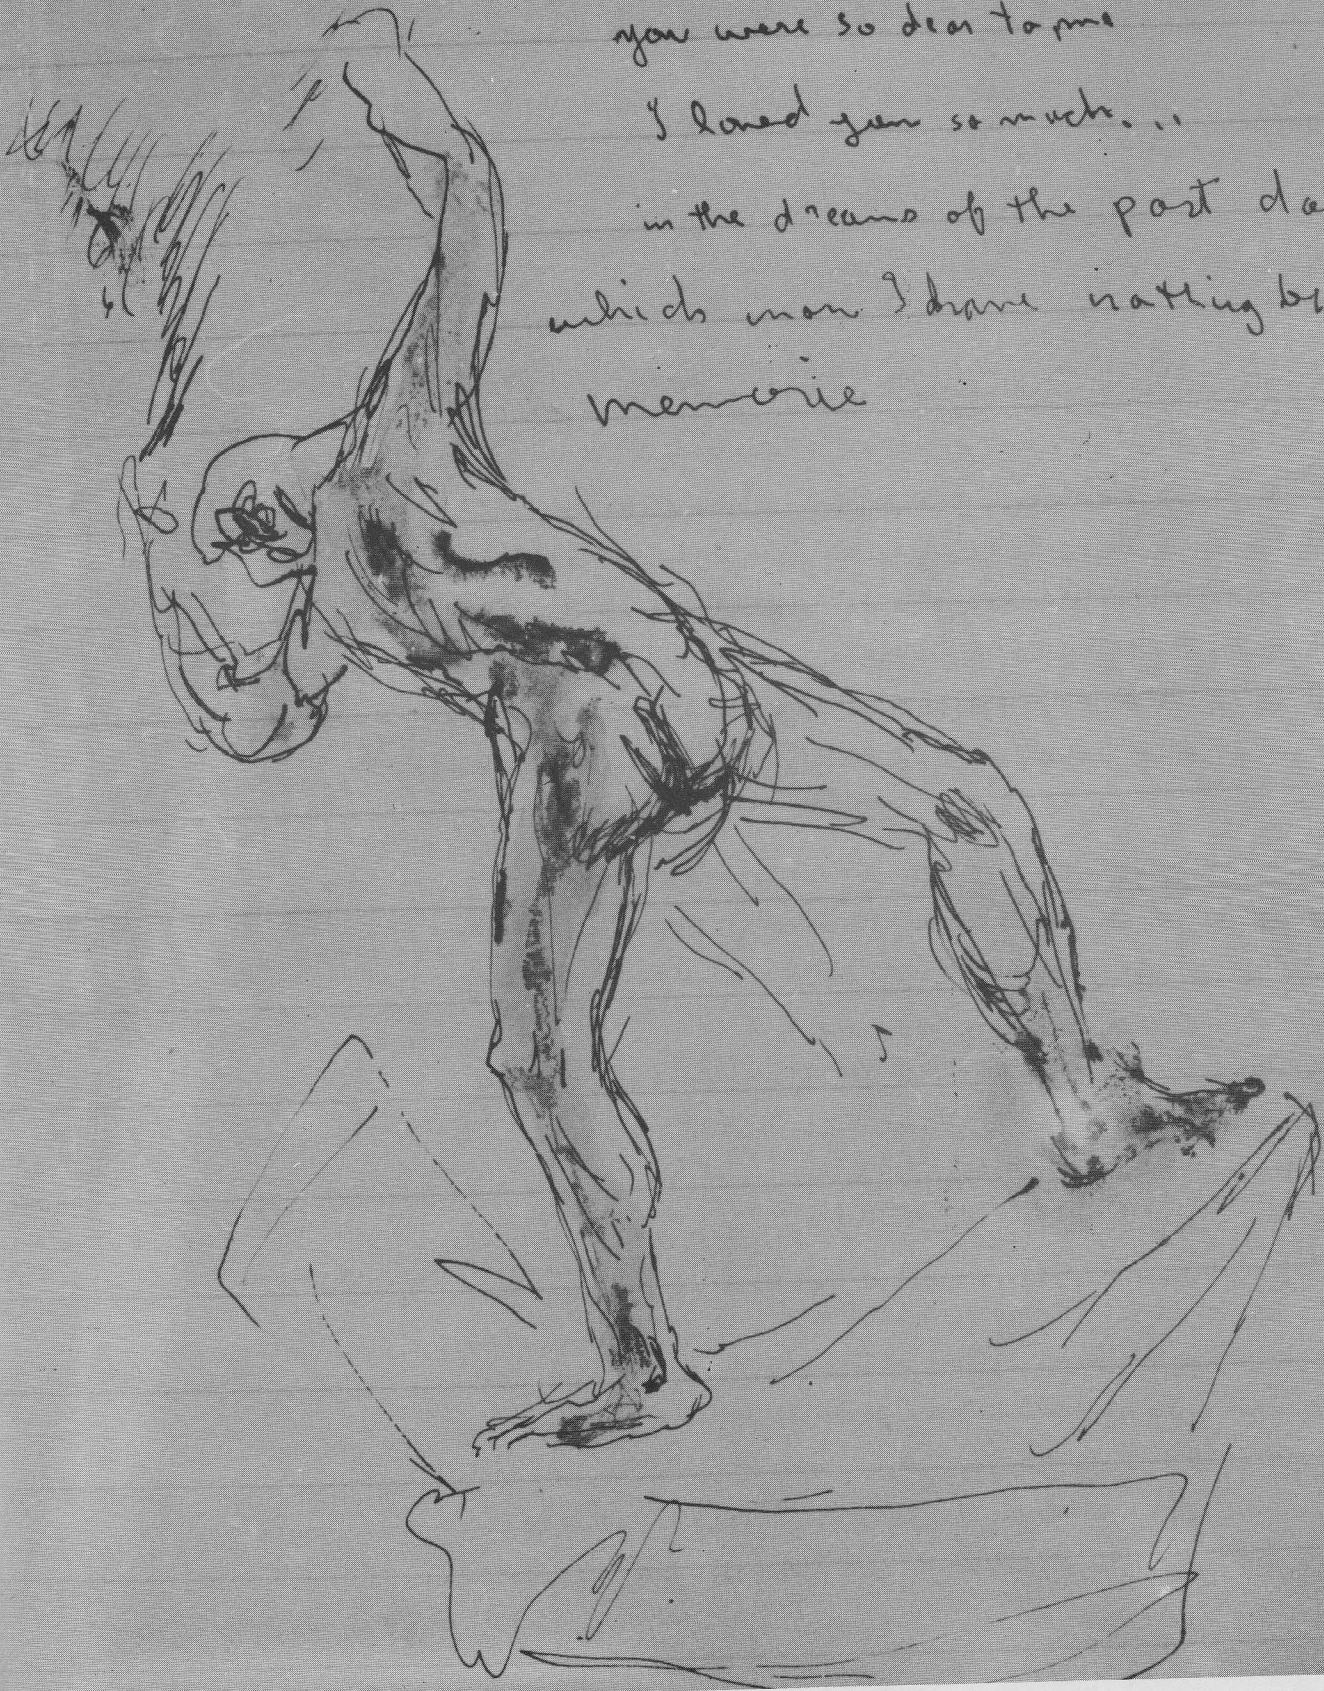 you were so dear to me
I loved you so much...
in the dreams of the past da
which now I have nothing bu
memorie